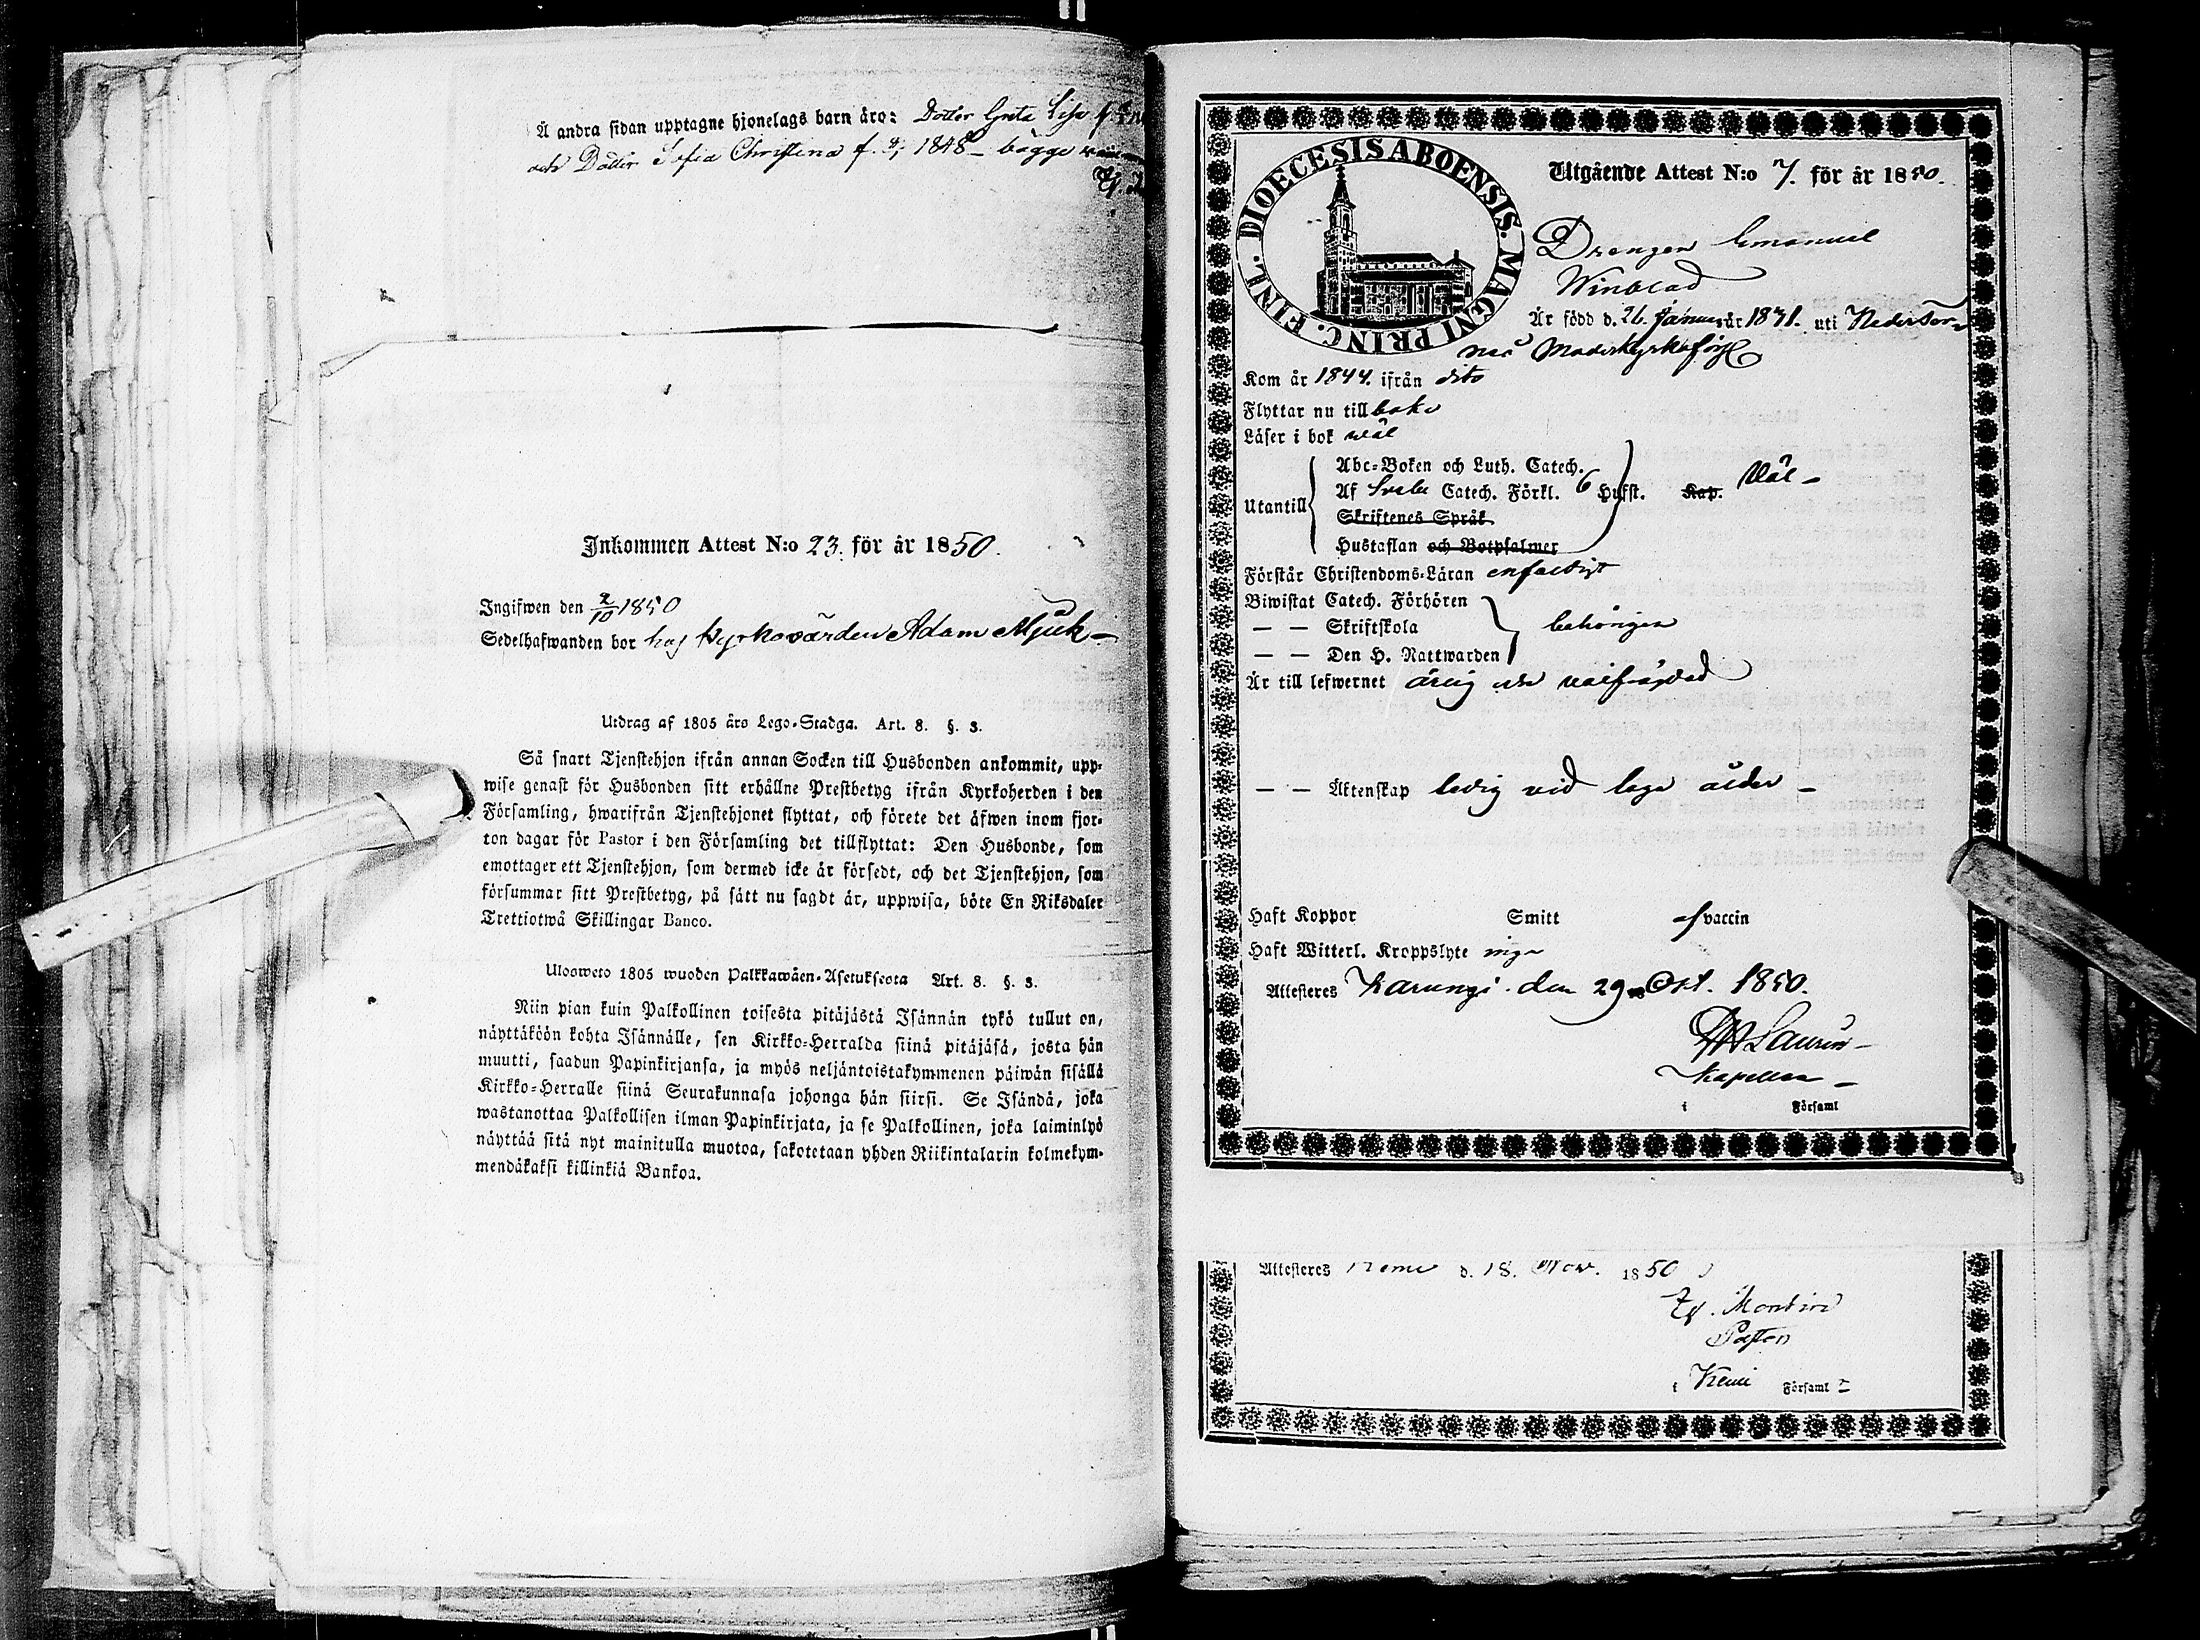 Å andra sidan upptagne hjonelags barn äro: Dotter Greta Lisa f.
och Dotter Sofia Christina f. 1848 – bägge
Inkommen Attest N:o 23. för år 1850.
Ingifwen den 2/10 1850
Sedelhafwanden bor hos Kyrkovärden Adam Mjuk –
Utdrag af 1805 års Lego-Stadga. Art. 8. §. 3.
Så snart Tjenstehjon ifrån annan Socken till Husbonden ankommit, upp-
wise genast för Husbonden sitt erhållne Prestbetyg ifrån Kyrkoherden i den
Församling, hwarifrån Tjenstehjonet flyttat, och förete det äfwen inom fjor-
ton dagar för Pastor i den Församling det tillflyttat: Den Husbonde, som
emottager ett Tjenstehjon, som dermed icke är försedt, och det Tjenstehjon, som
försummar sitt Prestbetyg, på sätt nu sagdt är, uppwisa, böte En Riksdaler
Trettiotwå Skillingar Banco.
Ulosweto 1805 wuoden Palkkawäen-Asetuksesta Art. 8. §. 3.
Niin pian kuin Palkollinen toisesta pitäjästä Isännän tykö tullut on,
näyttäköön kohta Isännälle, sen Kirkko-Herralda siinä pitäjäsä, josta hän
muutti, saadun Papinkirjansa, ja myös neljäntoistakymmenen päiwän sisällä
Kirkko-Herralle siinä Seurakunnasa johonga hän siirsi. Se Isändä, joka
wastanottaa Palkollisen ilman Papinkirjata, ja se Palkollinen, joka laiminlyö
näyttää sitä nyt mainitulla muotoa, sakotetaan yhden Riikintalarin kolmekym-
mendäkaksi killinkiä Bankoa.
DIOECESIS ABOENSIS. MAGNI PRINC. FINL.
Utgående Attest N:o 7. för år 1850.
Drengen Emanuel
Winblad
Är född d. 26. Januar. år 1831. uti Nedertor-
neå Moderkyrkoförs.
Kom år 1844. ifrån dito
Flyttar nu tillbaka
Läser i bok wäl
Abc-Boken och Luth. Catech.
Utantill Af Svebe Catech. Förkl. 6 Hufst. Kap. Wäl –
Skriftenes Språk
Hustaflan och Botpsalmer
Förstår Christendoms-Läran enfaldigt
Biwistat Catech. Förhören
— — Skriftskola behörigen
— — Den H. Nattwarden
Är till lefwernet ärlig och wälfrägdad
— — Äktenskap ledig vid laga ålder –
Haft Koppor Smitt af vaccin
Haft Witterl. Kroppslyte inga
Attesteres Karungi den 29 Oct. 1850.
Laurin –
Kapellan –
i Församl
Attesteres Kemi d. 18. Nov. 1850
Montin
Pastor
i Kemi Församl